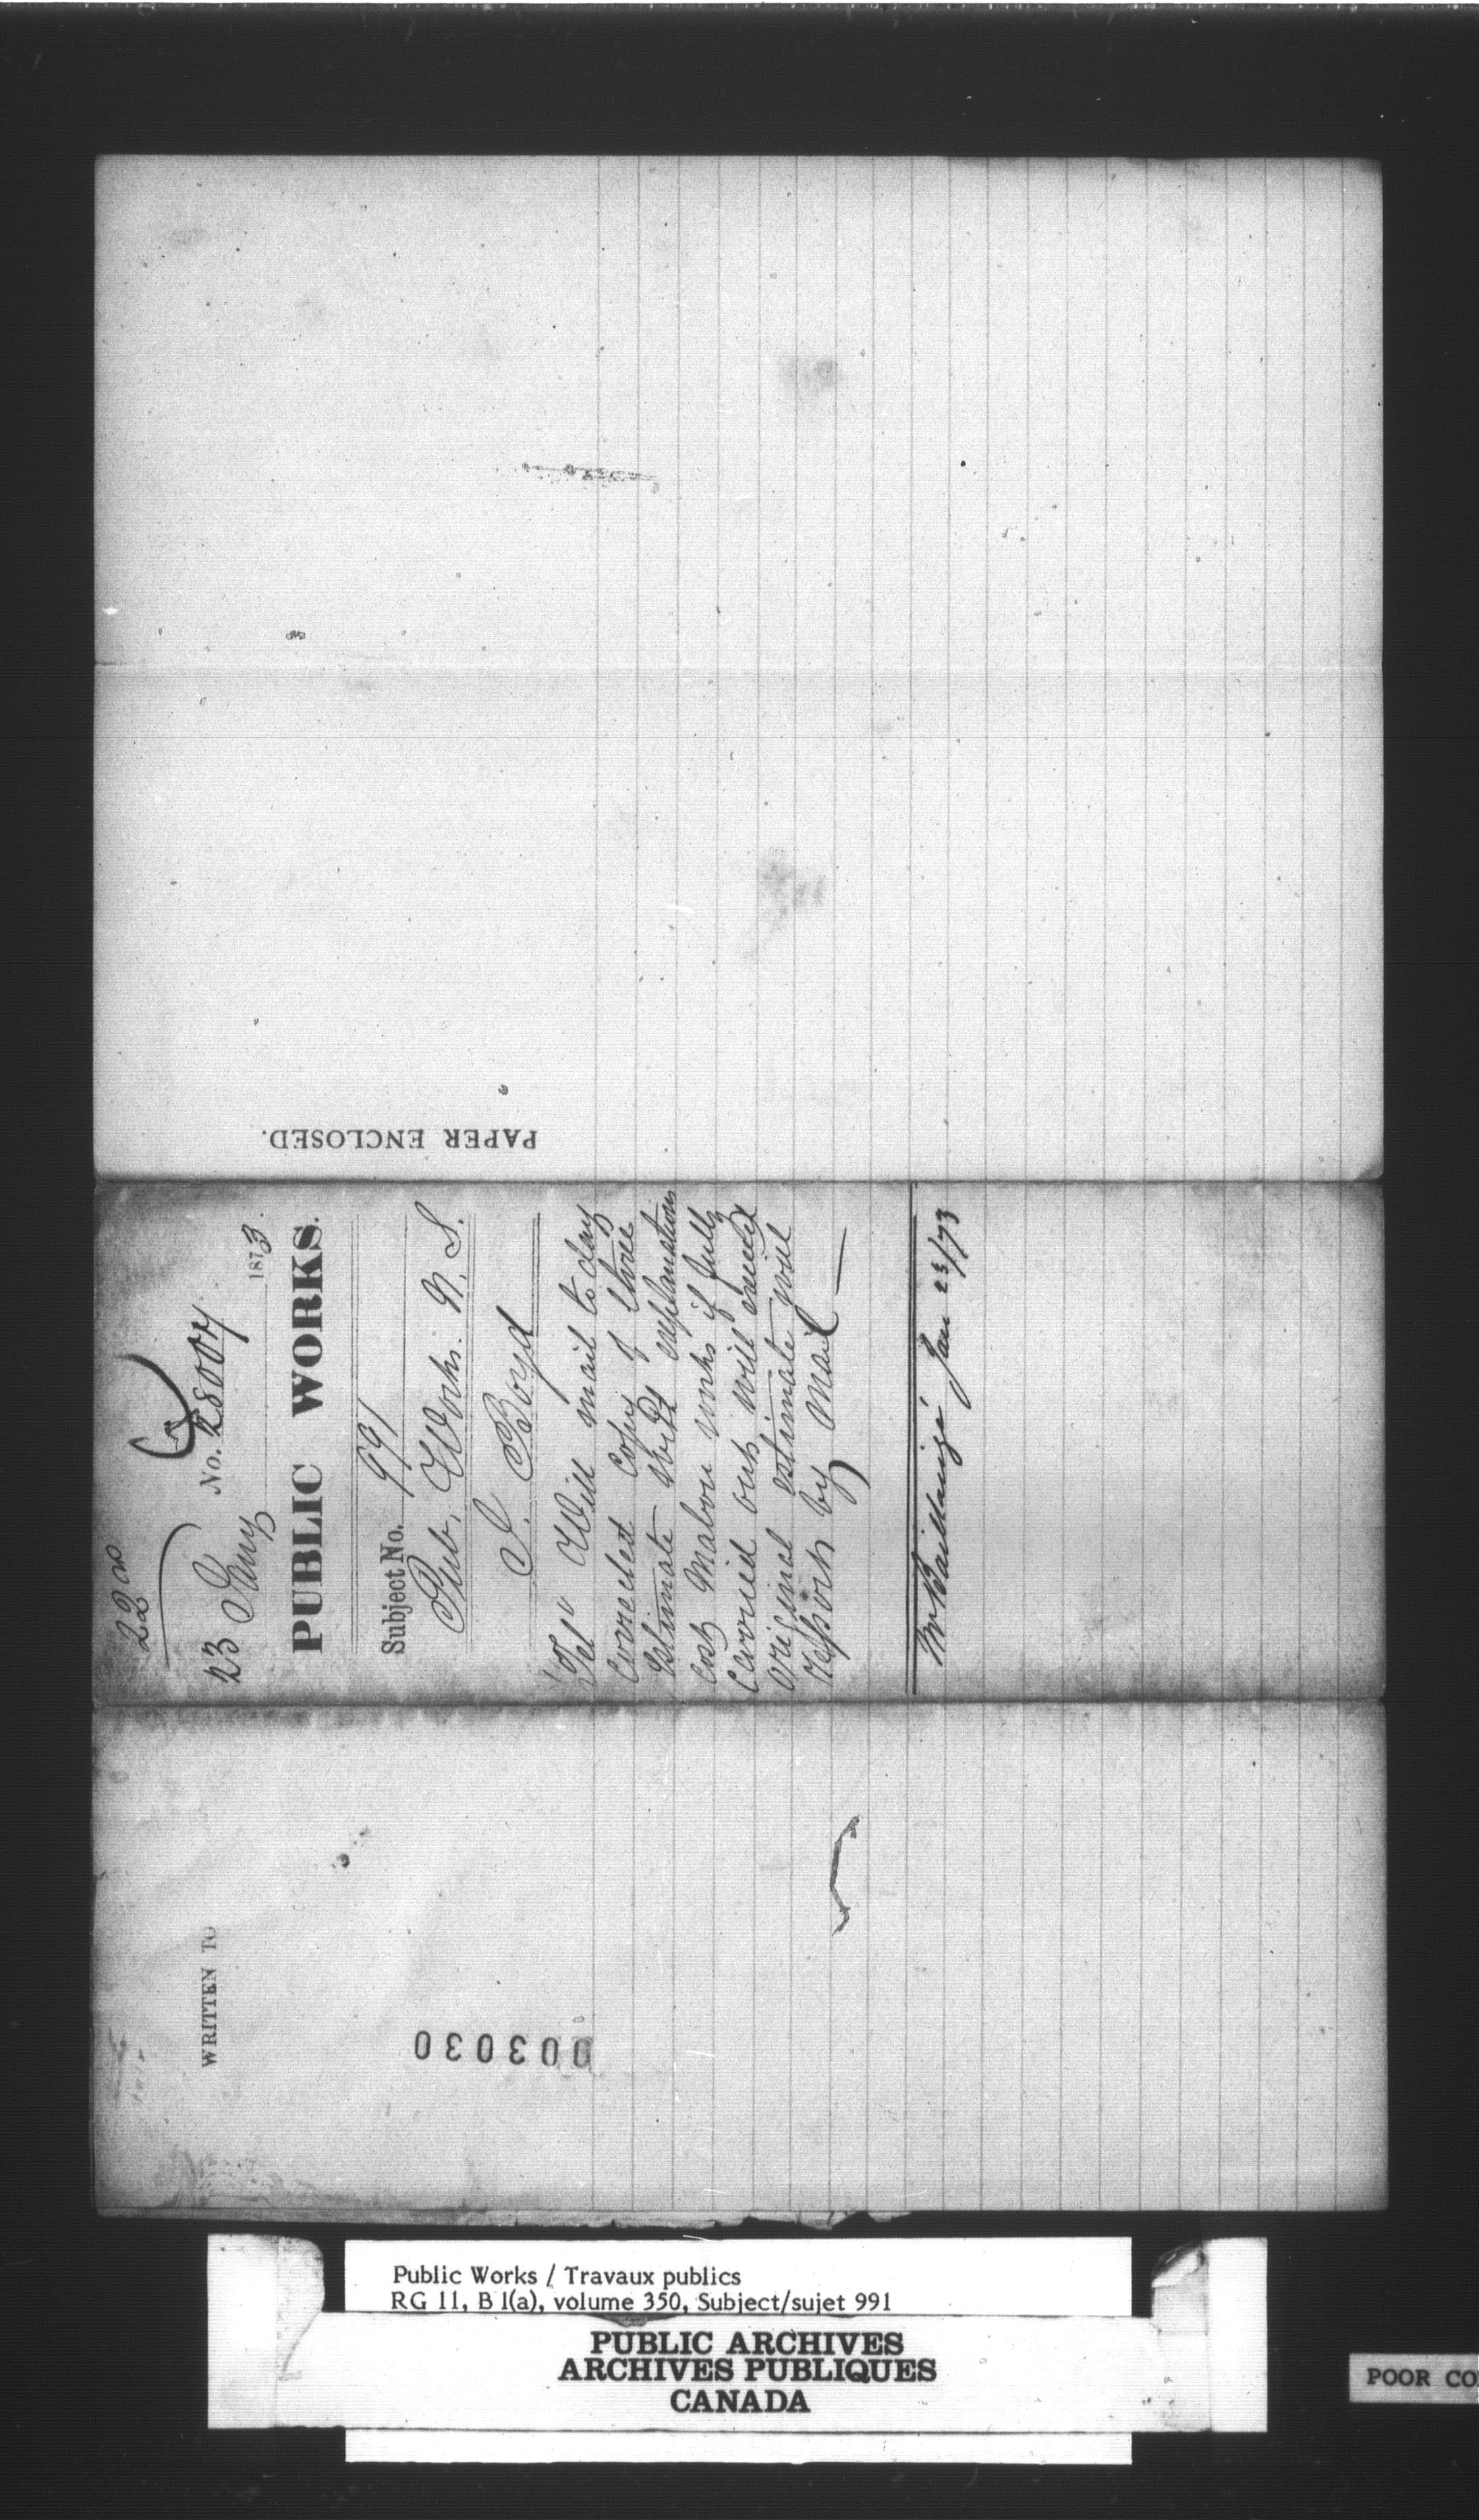 PAPER ENCLOSED.
No. 28007
23 Jany 1873
PUBLIC WORKS.
Subject No. 991
Pub. Works. N. S.
J. Boyd
Tel" Will mail to day
corrected copy of three
Estimate with explanations
Cost Mabou works if fully
Carried out will exceed
original estimate will
report by mail —
Mr Baillairgé Jan 23/73
WRITTEN TO
003030
Public Works / Travaux publics
RG 11, B 1(a), volume 350, Subject/sujet 991
PUBLIC ARCHIVES
ARCHIVES PUBLIQUES
CANADA
POOR CO